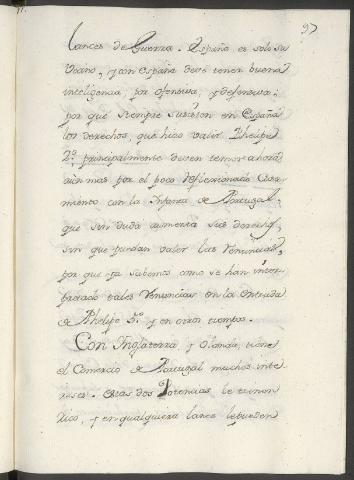 97
lances de Guerra. España es solo su
Vecino, y con España deve tener buena
inteligencia, por ofensiva, y defensiva;
por que siempre subsisten en España
los derechos, que hizo valer Phelipe
2º, principalmente deven temer ahora
aun mas por el poco reflexionado Casa-
miento con la Infanta de Portugal,
que sin duda aumenta sus derechos,
sin que puedan valer las renuncias,
por que ya sabemos como se han inter-
pretado tales renuncias en la entrada
de Phelipe 5º y en otros tiempos.
Con Inglaterra, y Olanda, tiene
el Comercio de Portugal muchos inte-
reses. Estas dos Potencias le tienen
rico, y en qualquiera lance le pueden